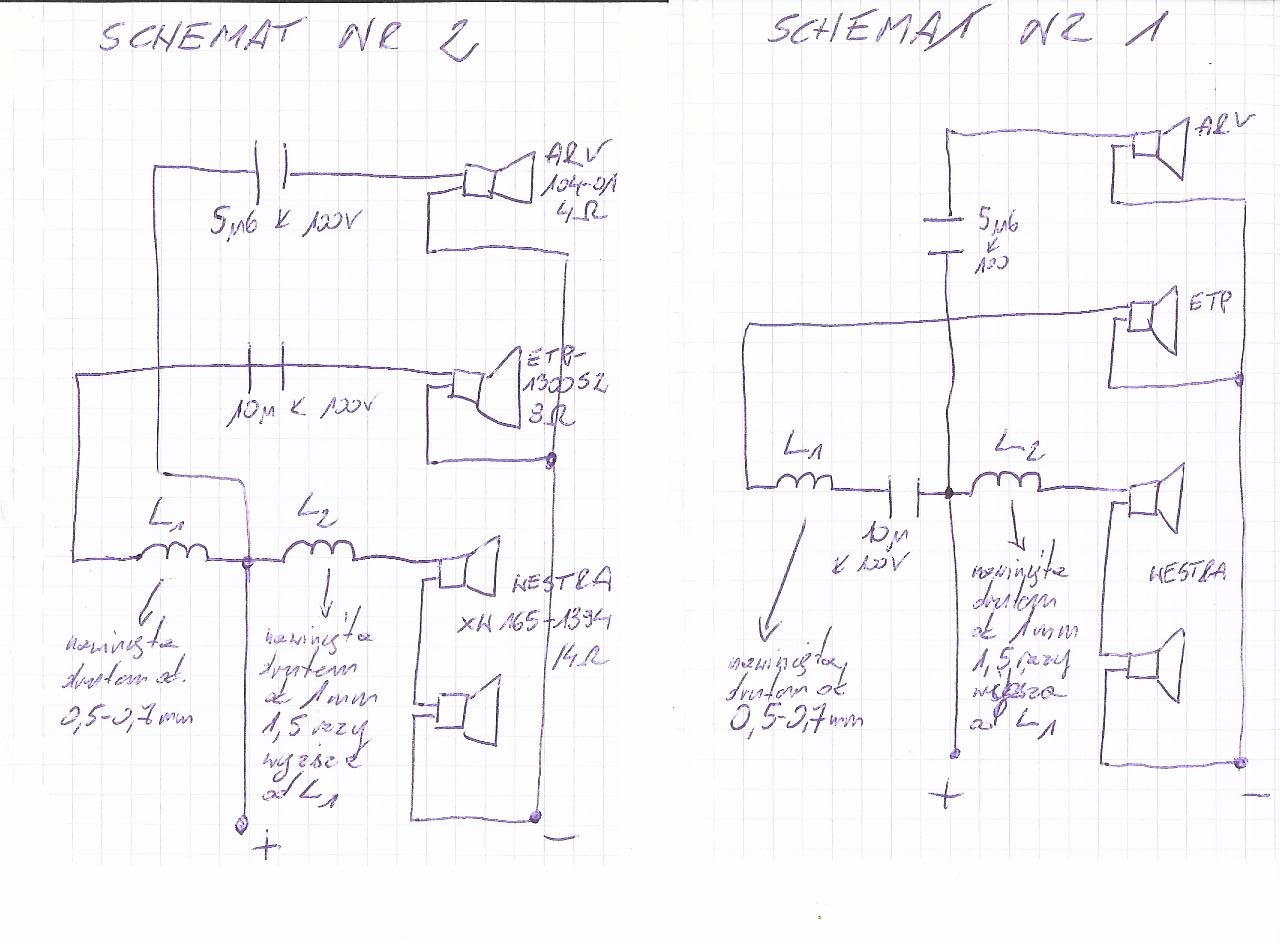 SCHEMAT NR 2
ARV
104-01
4Ω
5μ6 K 100V
ETP-
130052
8Ω
10μ K 100V
L1
L2
WESTRA
XW 165-1394
14Ω
nawinięta
drutem ok.
0,5-0,7mm
nawinięta
drutem
ok 1mm
1,5 razy
większa
od L1
+
−
SCHEMAT NR 1
ARV
5μ6
K
100
ETP
L1
L2
10μ
K 100V
WESTRA
nawinięta
drutem ok
0,5-0,7mm
nawinięta
drutem
ok 1mm
1,5 razy
większa
od L1
+
−